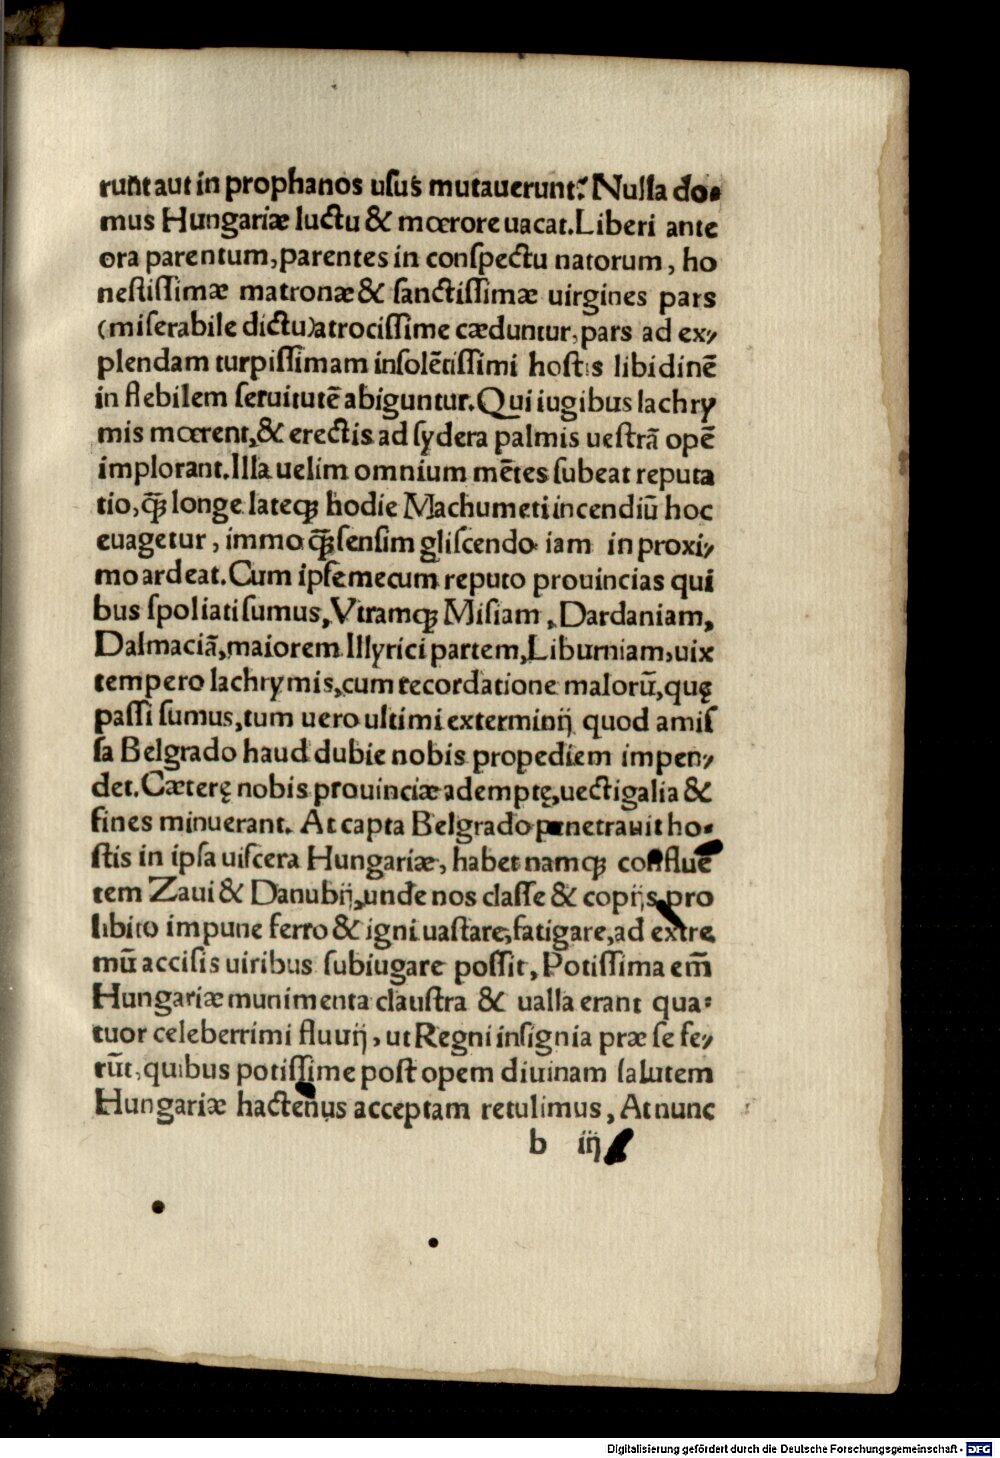 runt aut in prophanos uſus mutauerunt? Nulla do⸗
mus Hungariæ luctu & mœrore uacat. Liberi ante
ora parentum, parentes in conſpectu natorum, ho
neſtiſſimæ matronæ & ſanctiſſimæ uirgines pars
(miſerabile dictu) atrociſſime cæduntur, pars ad ex⸗
plendam turpiſſimam inſolẽtiſſimi hoſtis libidinẽ
in flebilem ſeruitutẽ abiguntur. Qui iugibus lachry
mis mœrent, & erectis ad ſydera palmis ueſtrã opẽ
implorant. Illa uelim omnium mẽtes ſubeat reputa
tio, ꝙ̃ longe lateqꝫ hodie Machumeti incendiũ hoc
euagetur, immo ꝙ̃ ſenſim gliſcendo iam in proxi⸗
mo ardeat. Cum ipſe mecum reputo prouincias qui
bus ſpoliati ſumus, Vtramqꝫ Miſiam, Dardaniam,
Dalmaciã, maiorem Illyrici partem, Liburniam, uix
tempero lachrymis, cum recordatione malorũ, quę
paſſi ſumus, tum uero ultimi exterminij quod amiſ
ſa Belgrado haud dubie nobis propediem impen⸗
det. Cæterę nobis prouinciæ ademptę, uectigalia &
fines minuerant. At capta Belgrado penetrauit ho⸗
ſtis in ipſa uiſcera Hungariæ, habet namqꝫ confluẽ
tem Zaui & Danubij, unde nos claſſe & copijs pro
libito impune ferro & igni uaſtare, fatigare, ad extre
mũ acciſis uiribus ſubiugare poſſit, Potiſſima em̃
Hungariæ munimenta clauſtra & ualla erant qua⸗
tuor celeberrimi fluuij, ut Regni inſignia præ ſe fe⸗
rũt, quibus potiſſime poſt opem diuinam ſalutem
Hungariæ hactenus acceptam retulimus, At nunc
b iij
Digitalisierung gefördert durch die Deutsche Forschungsgemeinschaft - DFG